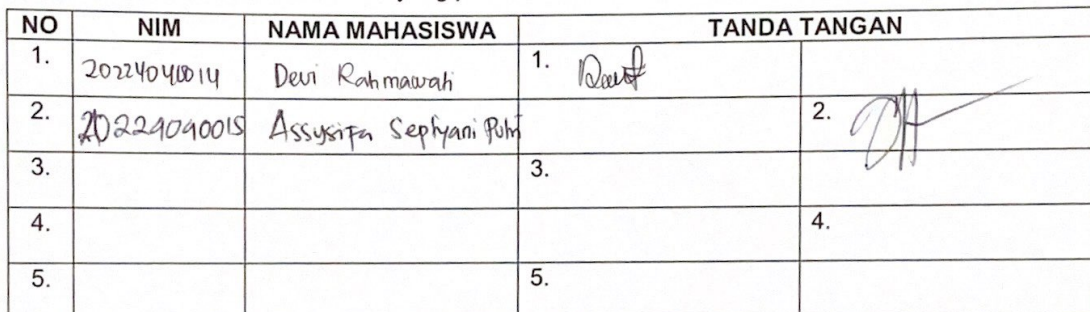 NO NIM NAMA MAHASISWA TANDA TANGAN
1. 20224040014 Devi Rahmawati 1.
2. 20224040015 Assysifa Septyani Putri 2.
3. 3.
4. 4.
5. 5.